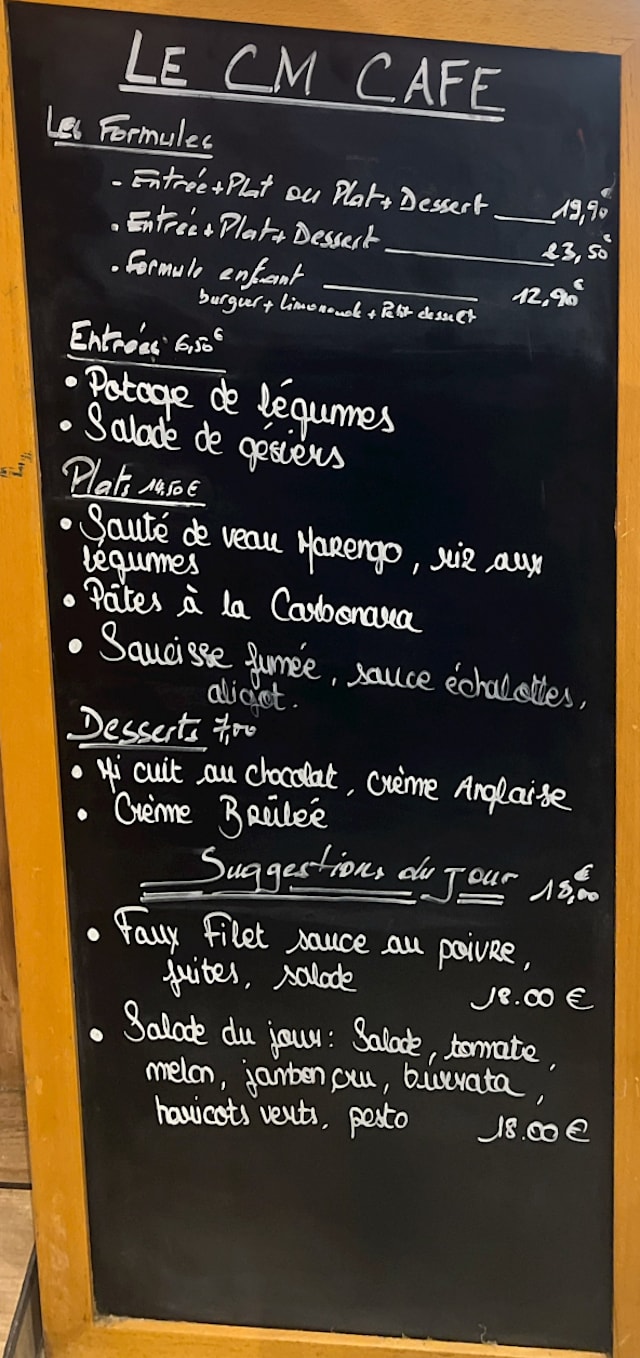 LE CM CAFE
Les Formules
- Entrée+Plat ou Plat+Dessert ___ 19,90€
• Entrée+Plat+Dessert ___ 23,50€
• Formule enfant ___ 12,90€
burguer+limonade+Petit dessert
Entrées 6,50€
• Potage de légumes
• Salade de gésiers
Plats 14,50€
• Sauté de veau Marengo, riz aux
légumes
• Pâtes à la Carbonara
• Saucisse fumée, sauce échalottes,
aligot.
Desserts 7,00
• Mi cuit au chocolat, crème Anglaise
• Crème Brûlée
Suggestions du Jour 18,00€
• Faux Filet sauce au poivre,
frites, salade
18.00 €
• Salade du jour: Salade, tomate,
melon, janbon cru, burrata,
haricots verts, pesto 18.00 €